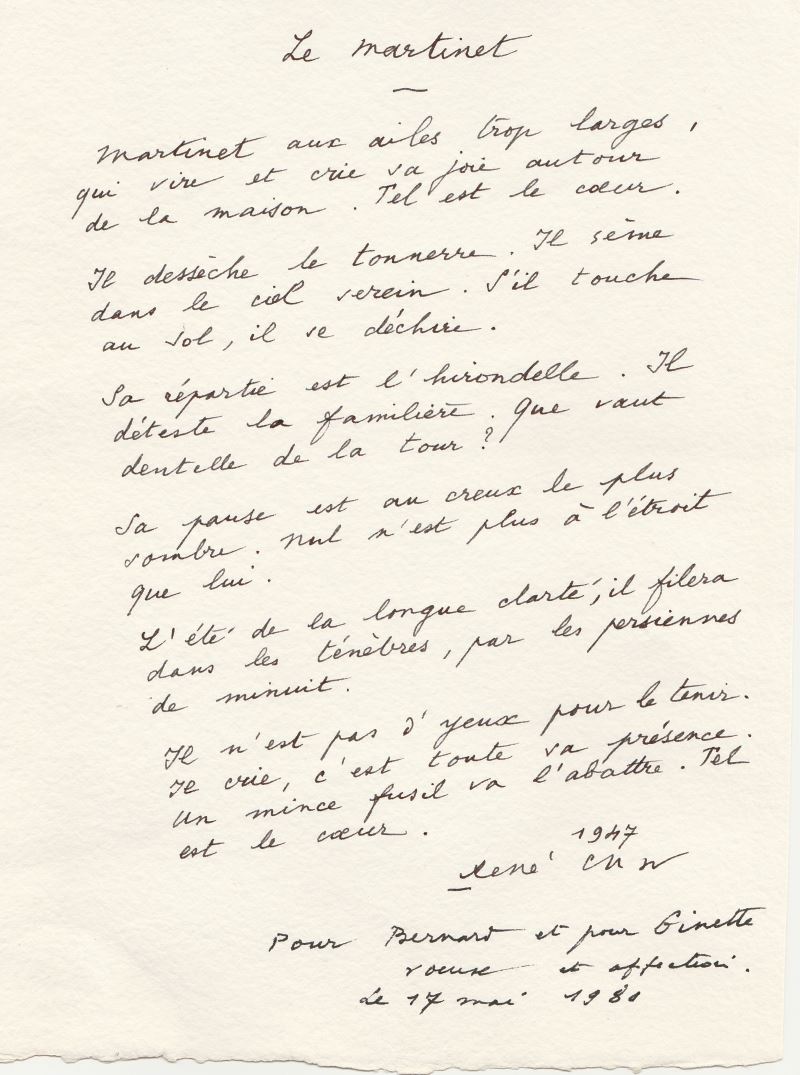 Le martinet
—
Martinet aux ailes trop larges,
qui vire et crie sa joie autour
de la maison. Tel est le cœur.
Il dessèche le tonnerre. Il sème
dans le ciel serein. S'il touche
au sol, il se déchire.
Sa répartie est l'hirondelle. Il
déteste la familière. Que vaut
dentelle de la tour ?
Sa pause est au creux le plus
sombre. Nul n'est plus à l'étroit
que lui.
L'été de la longue clarté, il filera
dans les ténèbres, par les persiennes
de minuit.
Il n'est pas d'yeux pour le tenir.
Il crie, c'est toute sa présence.
Un mince fusil va l'abattre. Tel
est le cœur.
1947
René Char
Pour Bernard et pour Ginette
et affection.
Le 17 mai